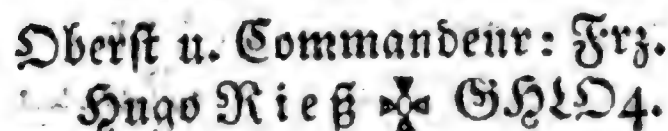 Oberst u. Commandeur: Frz.
Hugo Rieß ✠ GHLO4.